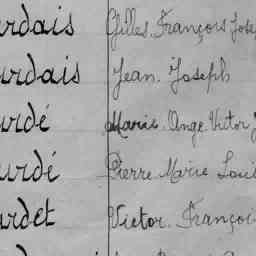 urdais Gilles François Jose
urdais Jean Joseph
urdé Marie Ange Victor J
urdé Pierre Marie Loui
urdet Victor François